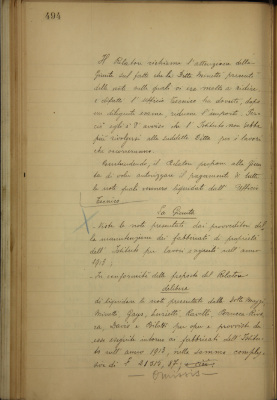 494
Il Relatore richiama l'attenzione della
Giunta sul fatto che la Ditta presentò
delle note nelle quali vi era
e difatti l'Ufficio Tecnico ha dovuto, dopo
un diligente esame, ridurre l'importo. Per
ciò egli è d'avviso che l'Istituto non debba
più rivolgersi alla suddetta Ditta per i lavori
che occorreranno.
Concludendo, il Relatore propone alla Giun
ta di voler autorizzare il pagamento di tutte
le note quali vennero liquidate dall'Ufficio
Tecnico.
La Giunta
Viste le note presentate dai provveditori del
la manutenzione dei fabbricati di proprietà
dell'Istituto per lavori eseguiti nell'anno
1913;
In conformità delle proposte del Relatore
delibera
di liquidare le note presentate dalle Ditte
per opere e provviste da
esse eseguite intorno ai fabbricati dell'Istitu
to nell'anno 1913, nella somma comples
siva di £
Omissis